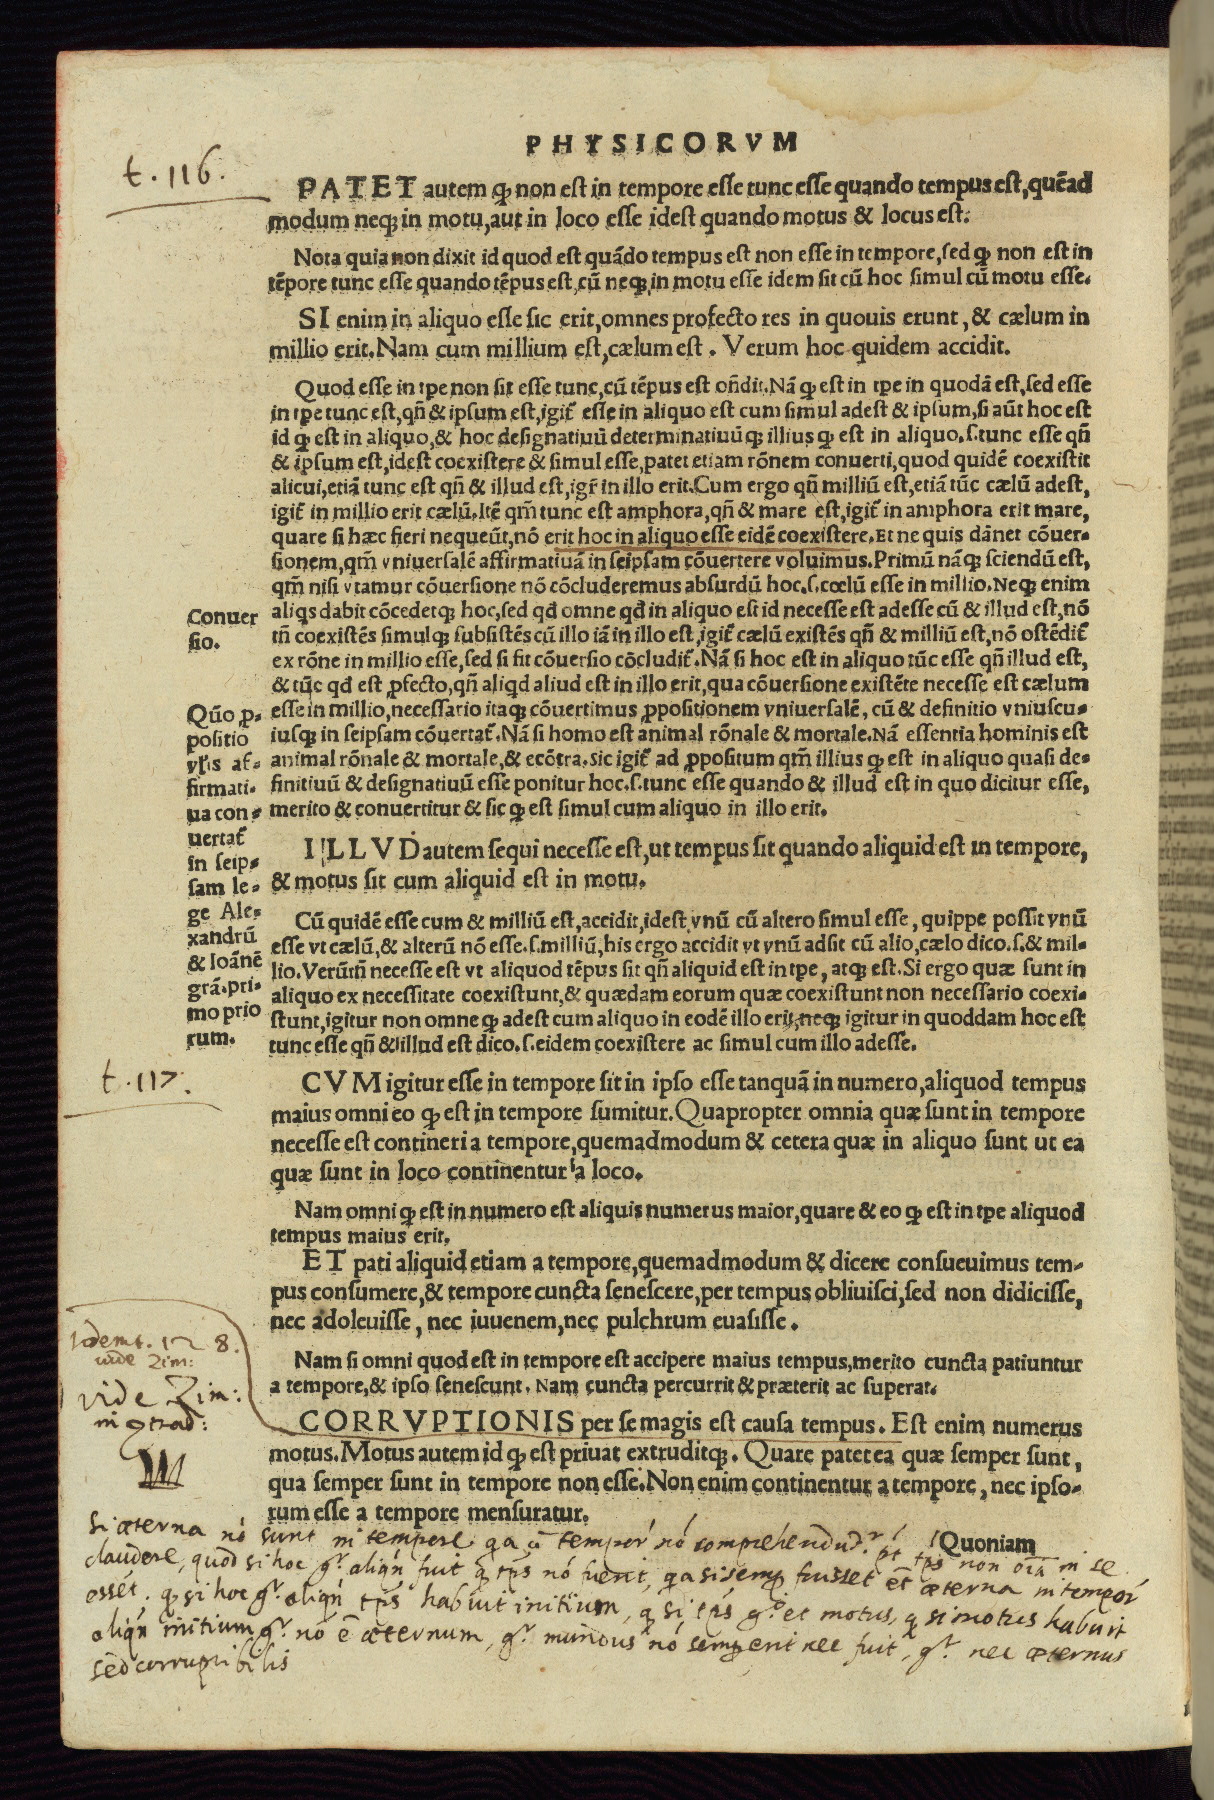 PHYSICORVM
t. 116.
PATET autem ꝙ non est in tempore esse tunc esse quando tempus est, quẽad
modum neq; in motu, aut in loco esse idest quando motus & locus est.
Nota quia non dixit id quod est quãdo tempus est non esse in tempore, sed ꝙ non est in
tẽpore tunc esse quando tẽpus est, cũ neq; in motu esse idem sit cũ hoc simul cũ motu esse.
SI enim in aliquo esse sic erit, omnes profecto res in quouis erunt, & cælum in
millio erit. Nam cum millium est, cælum est. Verum hoc quidem accidit.
Quod esse in tpe non sit esse tunc, cũ tẽpus est oñdit. Nã ꝙ est in tpe in quodã est, sed esse
in tpe tunc est, qñ & ipsum est, igit̃ esse in aliquo est cum simul adest & ipsum, si aũt hoc est
id ꝙ est in aliquo, & hoc designatiuũ determinatiuũq; illius ꝙ est in aliquo. s. tunc esse qñ
& ipsum est, idest coexistere & simul esse, patet etiam rõnem conuerti, quod quidẽ coexistit
alicui, etiã tunc est qñ & illud est, igr̃ in illo erit. Cum ergo qñ milliũ est, etiã tũc cælũ adest,
igit̃ in millio erit cælũ. Itẽ qm̃ tunc est amphora, qñ & mare est, igit̃ in amphora erit mare,
quare si hæc fieri nequeũt, nõ erit hoc in aliquo esse eidẽ coexistere. Et ne quis dãnet cõuer-
sionem, qm̃ vniuersalẽ affirmatiuã in seipsam cõuertere voluimus. Primũ nãq; sciendũ est,
qm̃ nisi vtamur cõuersione nõ cõcluderemus absurdũ hoc. s. cœlũ esse in millio. Neq; enim
Conuer
sio.
aliqs dabit cõcedetq; hoc, sed qđ omne qđ in aliquo est id necesse est adesse cũ & illud est, nõ
tñ coexistẽs simulq; subsistẽs cũ illo iã in illo est, igit̃ cælũ existẽs qñ & milliũ est, nõ ostẽdit̃
ex rõne in millio esse, sed si fit cõuersio cõcludit̃. Nã si hoc est in aliquo tũc esse qñ illud est,
& tũc qđ est ꝓfecto, qñ aliqd aliud est in illo erit, qua cõuersione existẽte necesse est cælum
esse in millio, necessario itaq; cõuertimus ꝓpositionem vniuersalẽ, cũ & definitio vniuscu-
iusq; in seipsam cõuertat̃. Nã si homo est animal rõnale & mortale. Nã essentia hominis est
animal rõnale & mortale, & ecõtra. Sic igit̃ ad ꝓpositum qm̃ illius ꝙ est in aliquo quasi de-
finitiuũ & designatiuũ esse ponitur hoc. s. tunc esse quando & illud est in quo dicitur esse,
merito & conuertitur & sic ꝙ est simul cum aliquo in illo erit.
Quõ ꝓ-
positio
vl̃is af-
firmati-
ua con-
uertat̃
in seip-
sam le-
ge Ale-
xandrũ
& Ioãnẽ
grã. pri-
mo prio
rum.
ILLVD autem sequi necesse est, ut tempus sit quando aliquid est in tempore,
& motus sit cum aliquid est in motu.
Cũ quidẽ esse cum & milliũ est, accidit, idest vnũ cũ altero simul esse, quippe possit vnũ
esse vt cælũ, & alterũ nõ esse. s. milliũ, his ergo accidit vt vnũ adsit cũ alio, cælo dico. s. & mil-
lio. Verũtñ necesse est vt aliquod tẽpus sit qñ aliquid est in tpe, atq; est. Si ergo quæ sunt in
aliquo ex necessitate coexistunt, & quædam eorum quæ coexistunt non necessario coexi-
stunt, igitur non omne ꝙ adest cum aliquo in eodẽ illo erit, neq; igitur in quoddam hoc est
tunc esse qñ & illud est dico. s. eidem coexistere ac simul cum illo adesse.
t. 117.
CVM igitur esse in tempore sit in ipso esse tanquã in numero, aliquod tempus
maius omni eo ꝙ est in tempore sumitur. Quapropter omnia quæ sunt in tempore
necesse est contineri a tempore, quemadmodum & cetera quæ in aliquo sunt ut ea
quæ sunt in loco continentur a loco.
Nam omni ꝙ est in numero est aliquis numerus maior, quare & eo ꝙ est in tpe aliquod
tempus maius erit.
ET pati aliquid etiam a tempore, quemadmodum & dicere consueuimus tem-
pus consumere, & tempore cuncta senescere, per tempus obliuisci, sed non didicisse,
nec adoleuisse, nec iuuenem, nec pulchrum euasisse.
Nam si omni quod est in tempore est accipere maius tempus, merito cuncta patiuntur
a tempore, & ipso senescunt. Nam cuncta percurrit & præterit ac superat.
Idem t. 128.
vide Zim:
vide Zim:
in 9trad:
CORRVPTIONIS per se magis est causa tempus. Est enim numerus
motus. Motus autem id ꝙ est priuat extruditq;. Quare patet ea quæ semper sunt,
qua semper sunt in tempore non esse. Non enim continentur a tempore, nec ipso-
rum esse a tempore mensuratur.
Quoniam
Si æterna nõ sunt in tempore qa a tempor' nõ comprehendũt.r pt tps non oia in se
claudere, quod si hoc gr. aliqñ fuit q tps nõ fuerit, qa si semp fuisset et æterna in tempor'
essẽt. q si hoc gr. aliqñ tps habuit initium, q si tps gº et motus, q si motus habuit
aliqñ initium gr. nõ ẽ æternum, gr. mundus nõ semp erit nec fuit, gr. nec æternus
sed corruptibilis